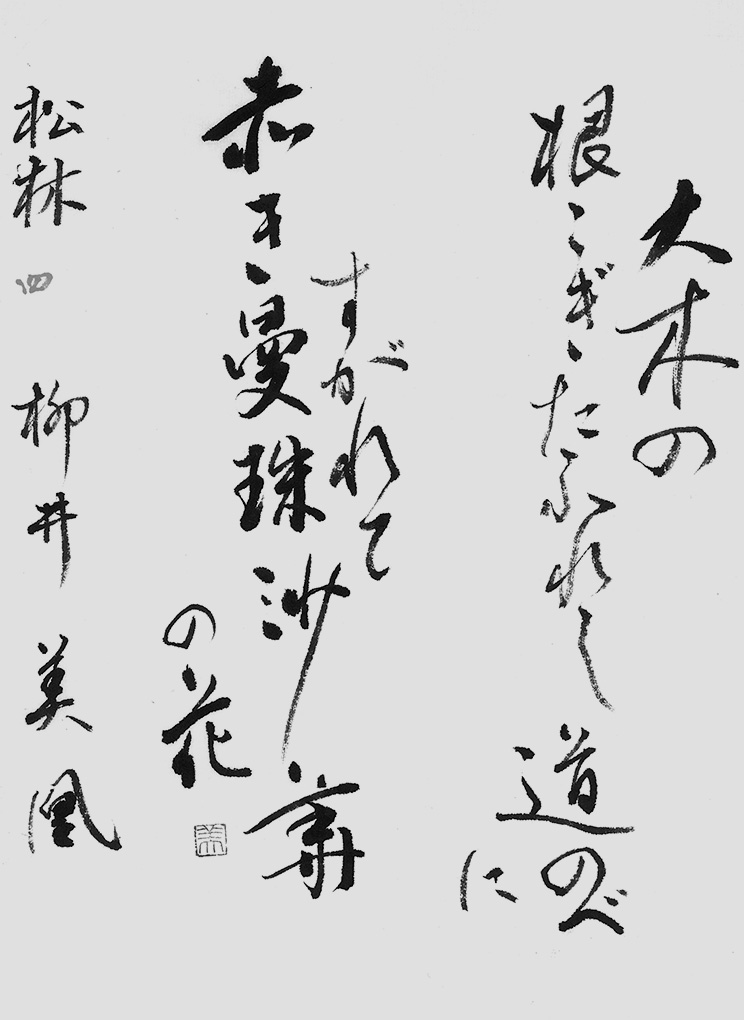 大木の
根こぎたふれし道のべ
に
すがれて
赤き曼珠沙華
の花
美
松林 四 柳井美凰